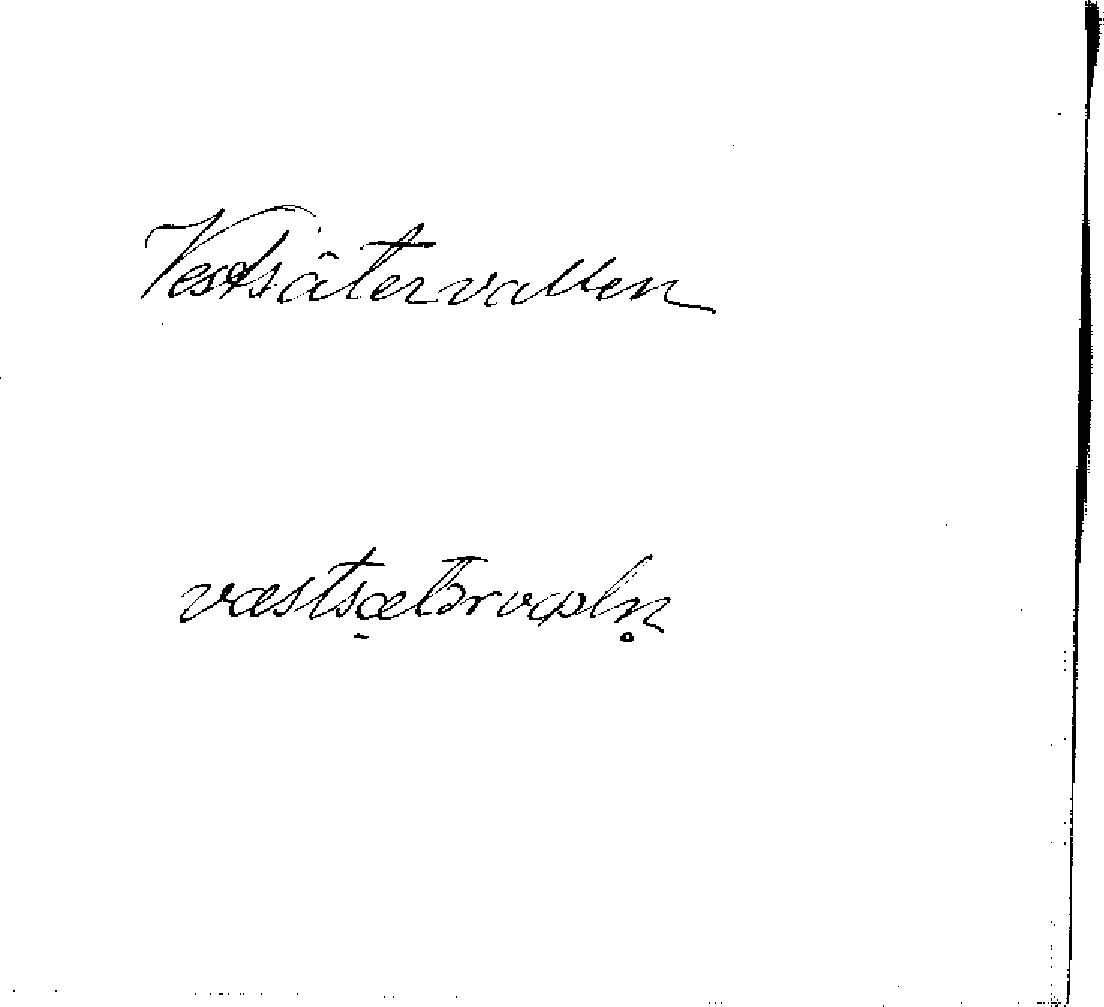 Vestsätervallen
væstsæ̠tərvɑln̥